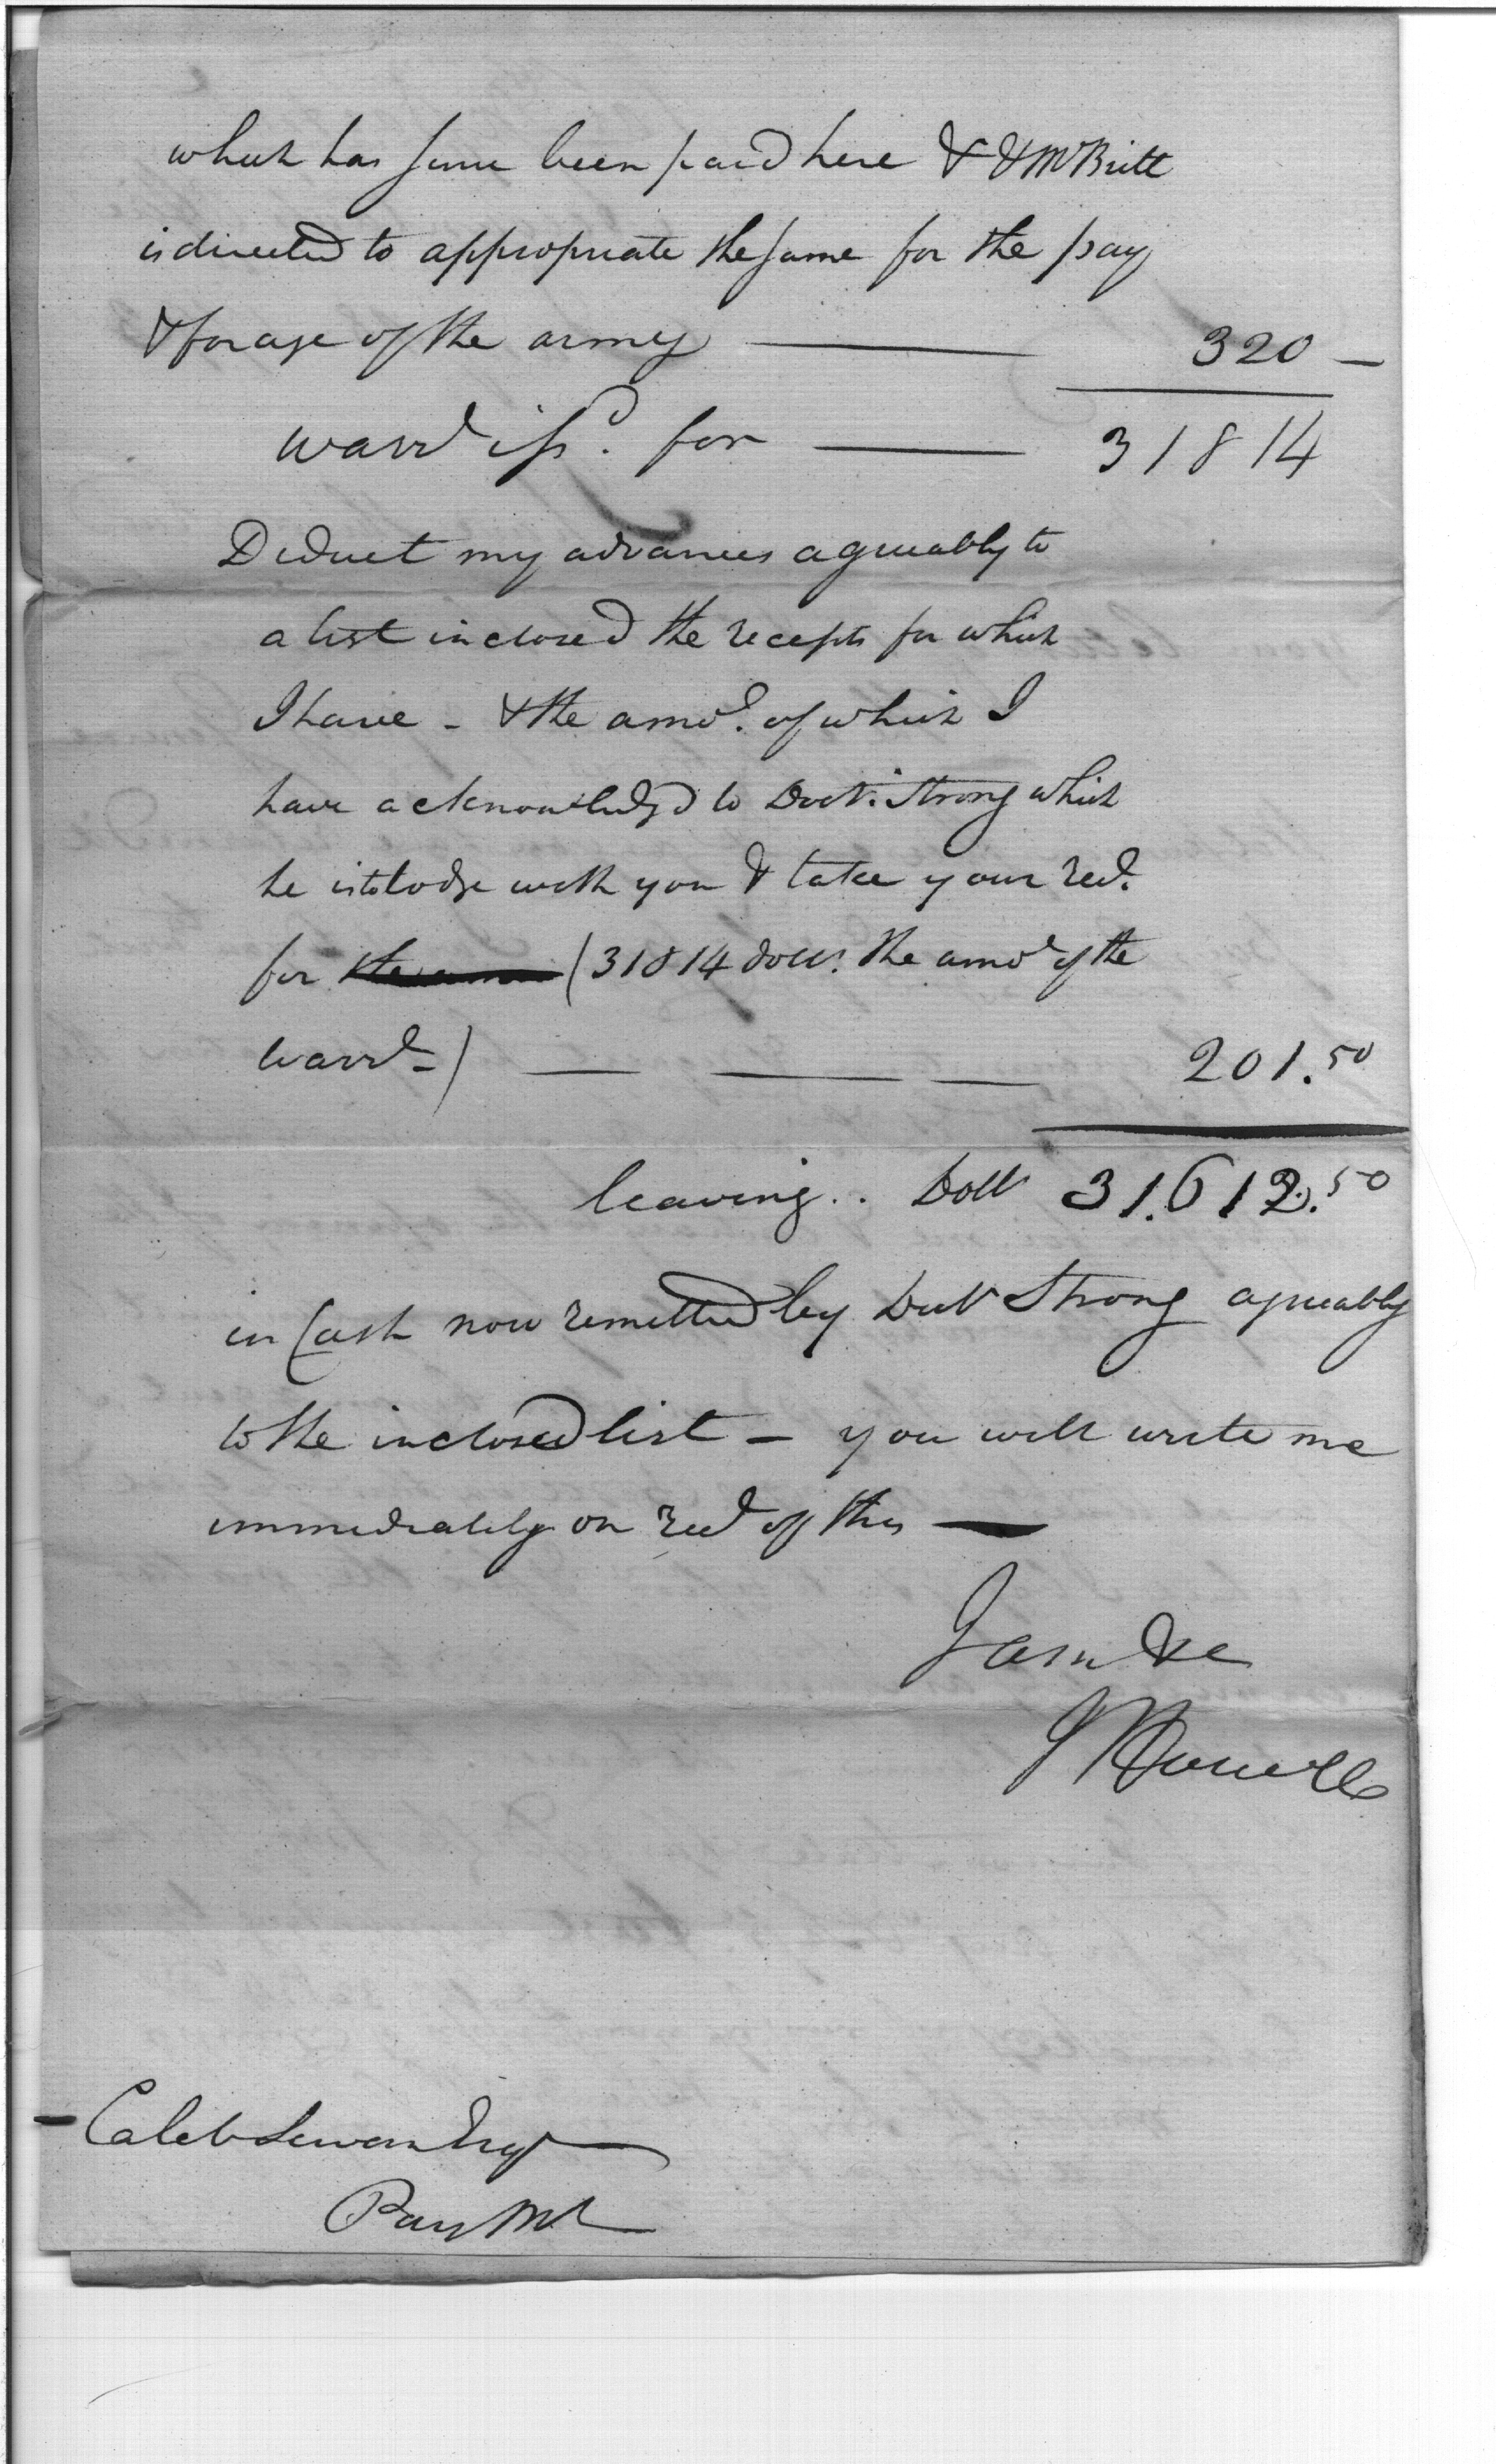 which has since been paid here & Mr Britt
is directed to appropriate the same for the pay
& forage of the army — 320 —
warrt iss. for — 31814
Deduct my advances agreeably to
a list inclosed the recepts for which
I have - & the amot. of which I
have acknowledgd to Doctr. Strong which
he is to lodge with you & take your rect.
for (31814 dolls. the amot of the
warrt -) — — — 201.50
leaving .. Dolls 31.612.50
in Cash now remitted by Doctr Strong agreeably
to the inclosed list - you will write me
immediately on rect of this —
I am &c
J Howell
- Caleb Swan Esqr
Pay Mr